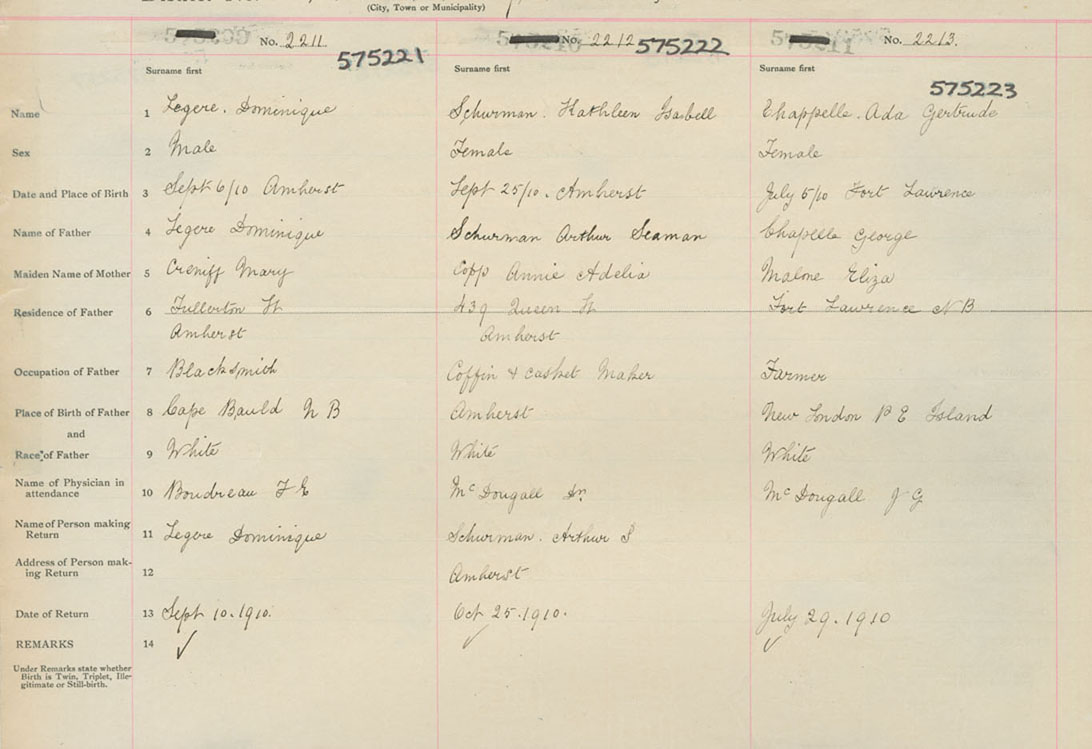 (City, Town or Municipality)
No. 2211 575221
No. 2212 575222
No. 2213.
Surname first Surname first Surname first
575223
Name 1 Legere. Dominique Schurman. Kathleen Isabell Chappelle. Ada Gertrude
Sex 2 Male Female Female
Date and Place of Birth 3 Sept 6/10 Amherst Sept 25/10. Amherst July 5/10 Fort Lawrence
Name of Father 4 Legere Dominique Schurman Arthur Seaman Chapelle George
Maiden Name of Mother 5 Creniff Mary Copp Annie Adelia Malone Eliza
Residence of Father 6 Fullerton St 439 Queen St Fort Lawrence N B
Amherst Amherst
Occupation of Father 7 Blacksmith Coffin & casket Maker Farmer
Place of Birth of Father 8 Cape Bauld N B Amherst New London P E Island
and
Race of Father 9 White White White
Name of Physician in
attendance 10 Boudreau F E McDougall Dr. McDougall J G
Name of Person making
Return 11 Legere Dominique Schurman. Arthur S
Address of Person mak-
ing Return 12 Amherst
Date of Return 13 Sept 10.1910. Oct 25.1910. July 29.1910
REMARKS 14 ✓ ✓ ✓
Under Remarks state whether
Birth is Twin, Triplet, Ille-
gitimate or Still-birth.